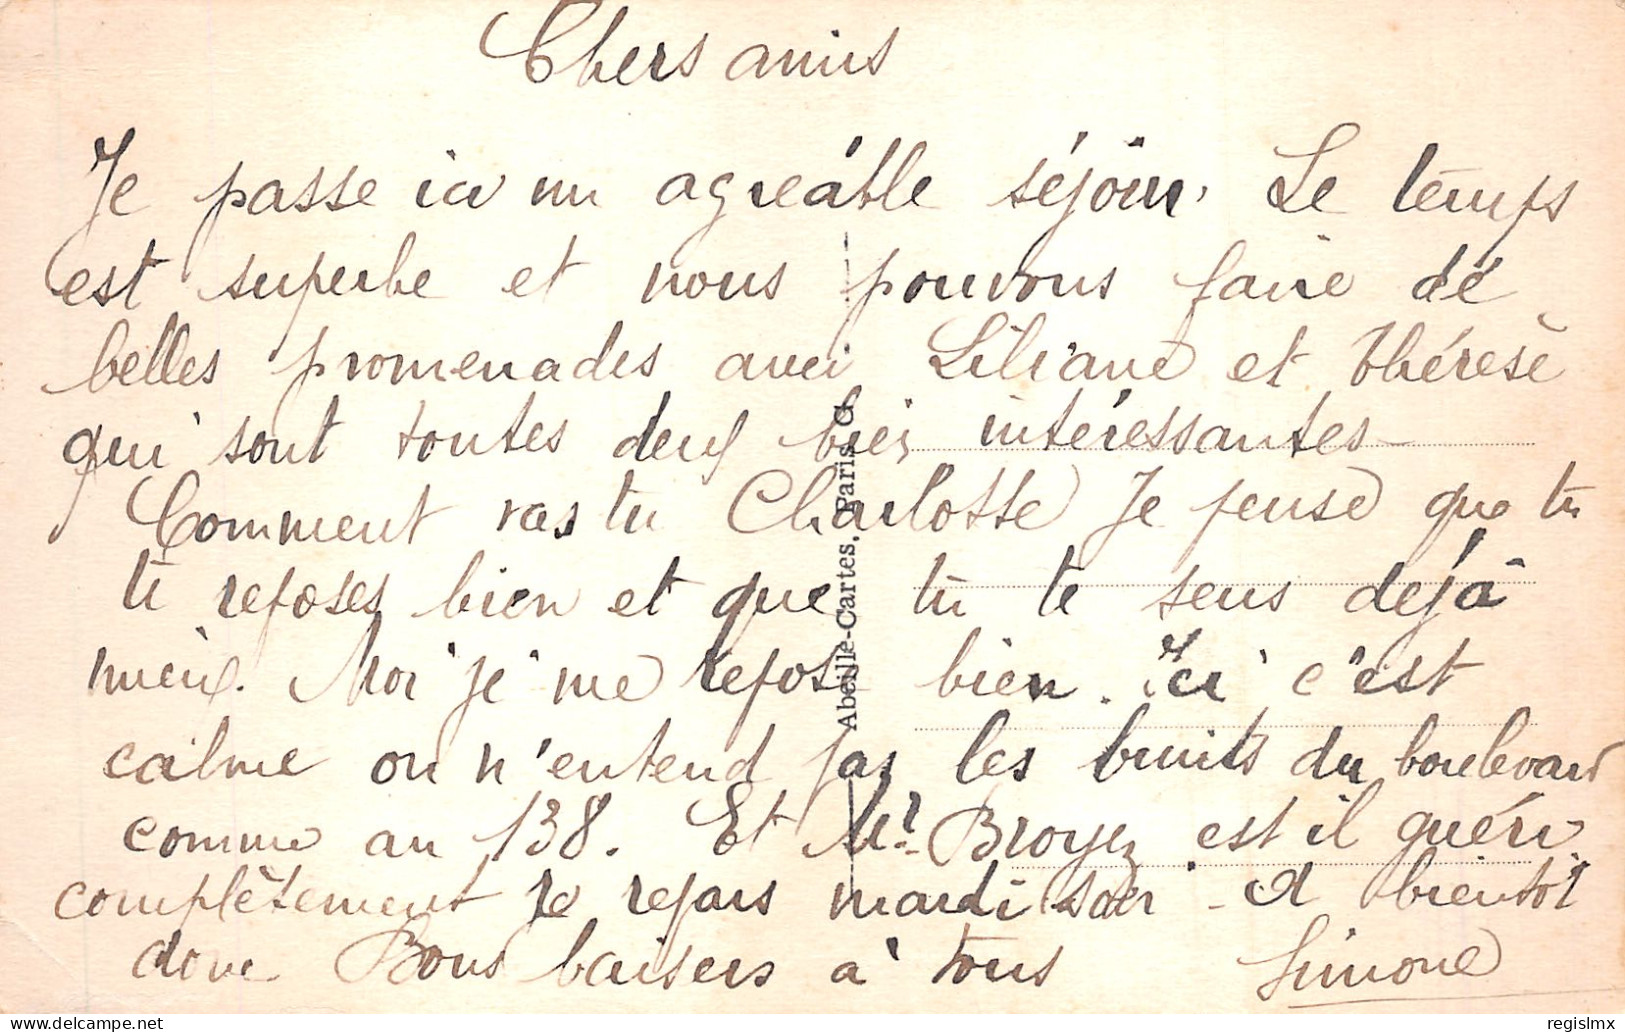 Chers amis
Je passe ici un agréable séjour. Le temps
est superbe et nous pouvons faire de
belles promenades avec Liliane et Thérèse
qui sont toutes deux bien intéressantes
Comment vas tu Charlotte Je pense que tu
te reposes bien et que tu te sens déjà
mieux. Moi je me repose bien. Ici c'est
calme on n'entend pas les bruits du boulevard
comme au 138. Et Mr. Broyez est il guéri
complètement Je repars mardi soir - A bientôt
donc Bons baisers à tous Simone
Abeille-Cartes, Paris
delcampe.net
regislmx